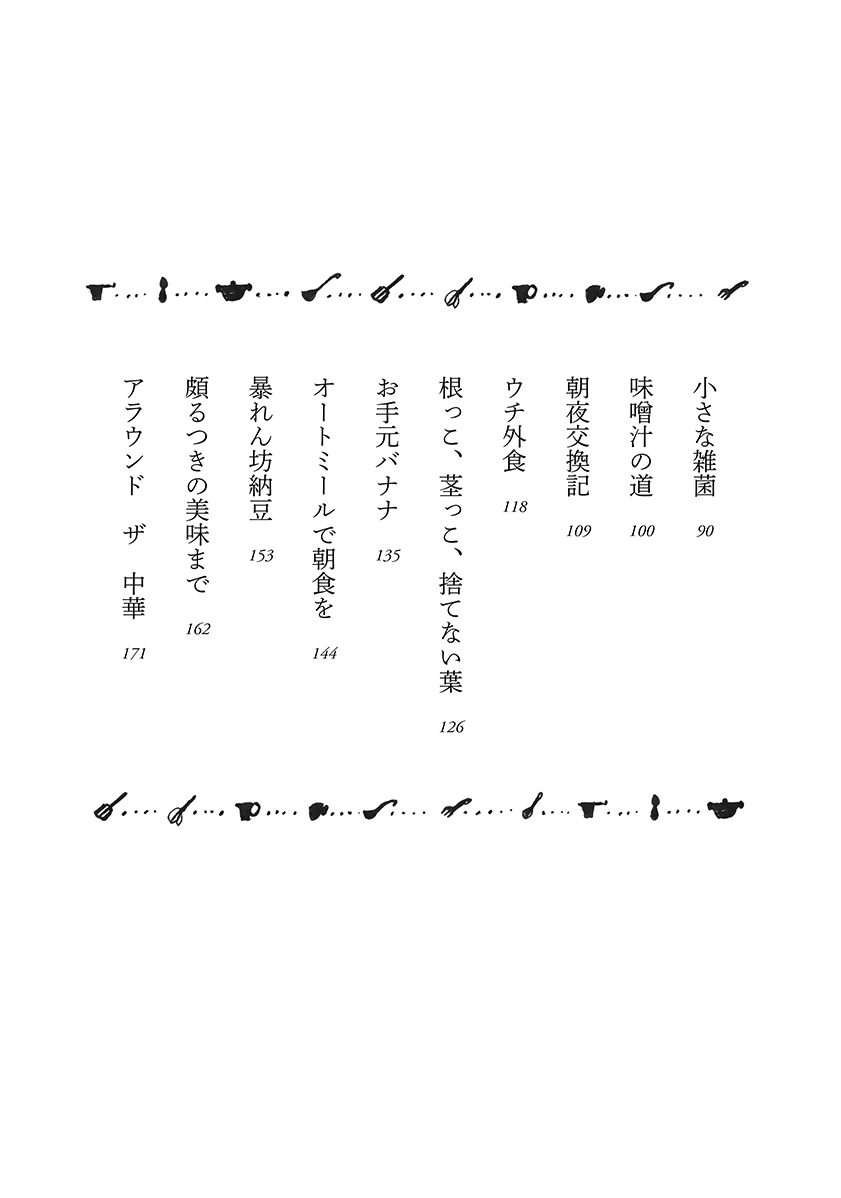 小さな雑菌 90
味噌汁の道 100
朝夜交換記 109
ウチ外食 118
根っこ、茎っこ、捨てない葉 126
お手元バナナ 135
オートミールで朝食を 144
暴れん坊納豆 153
頗るつきの美味まで 162
アラウンド　ザ　中華 171